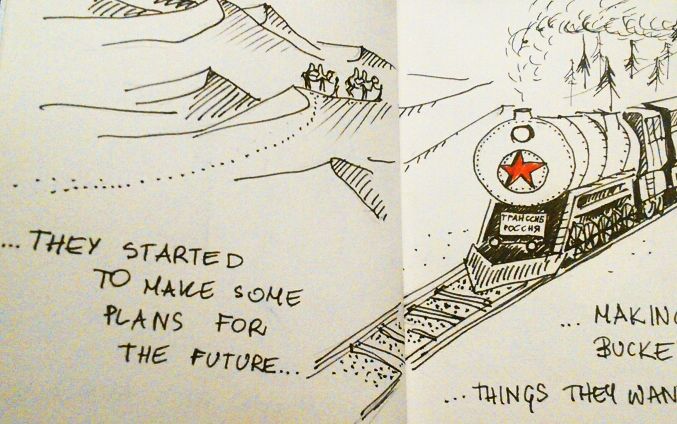 ...THEY STARTED
TO MAKE SOME
PLANS FOR
THE FUTURE...
ТРАНССИБ
РОССИЯ
... MAKING
BUCKE
...THINGS THEY WAN